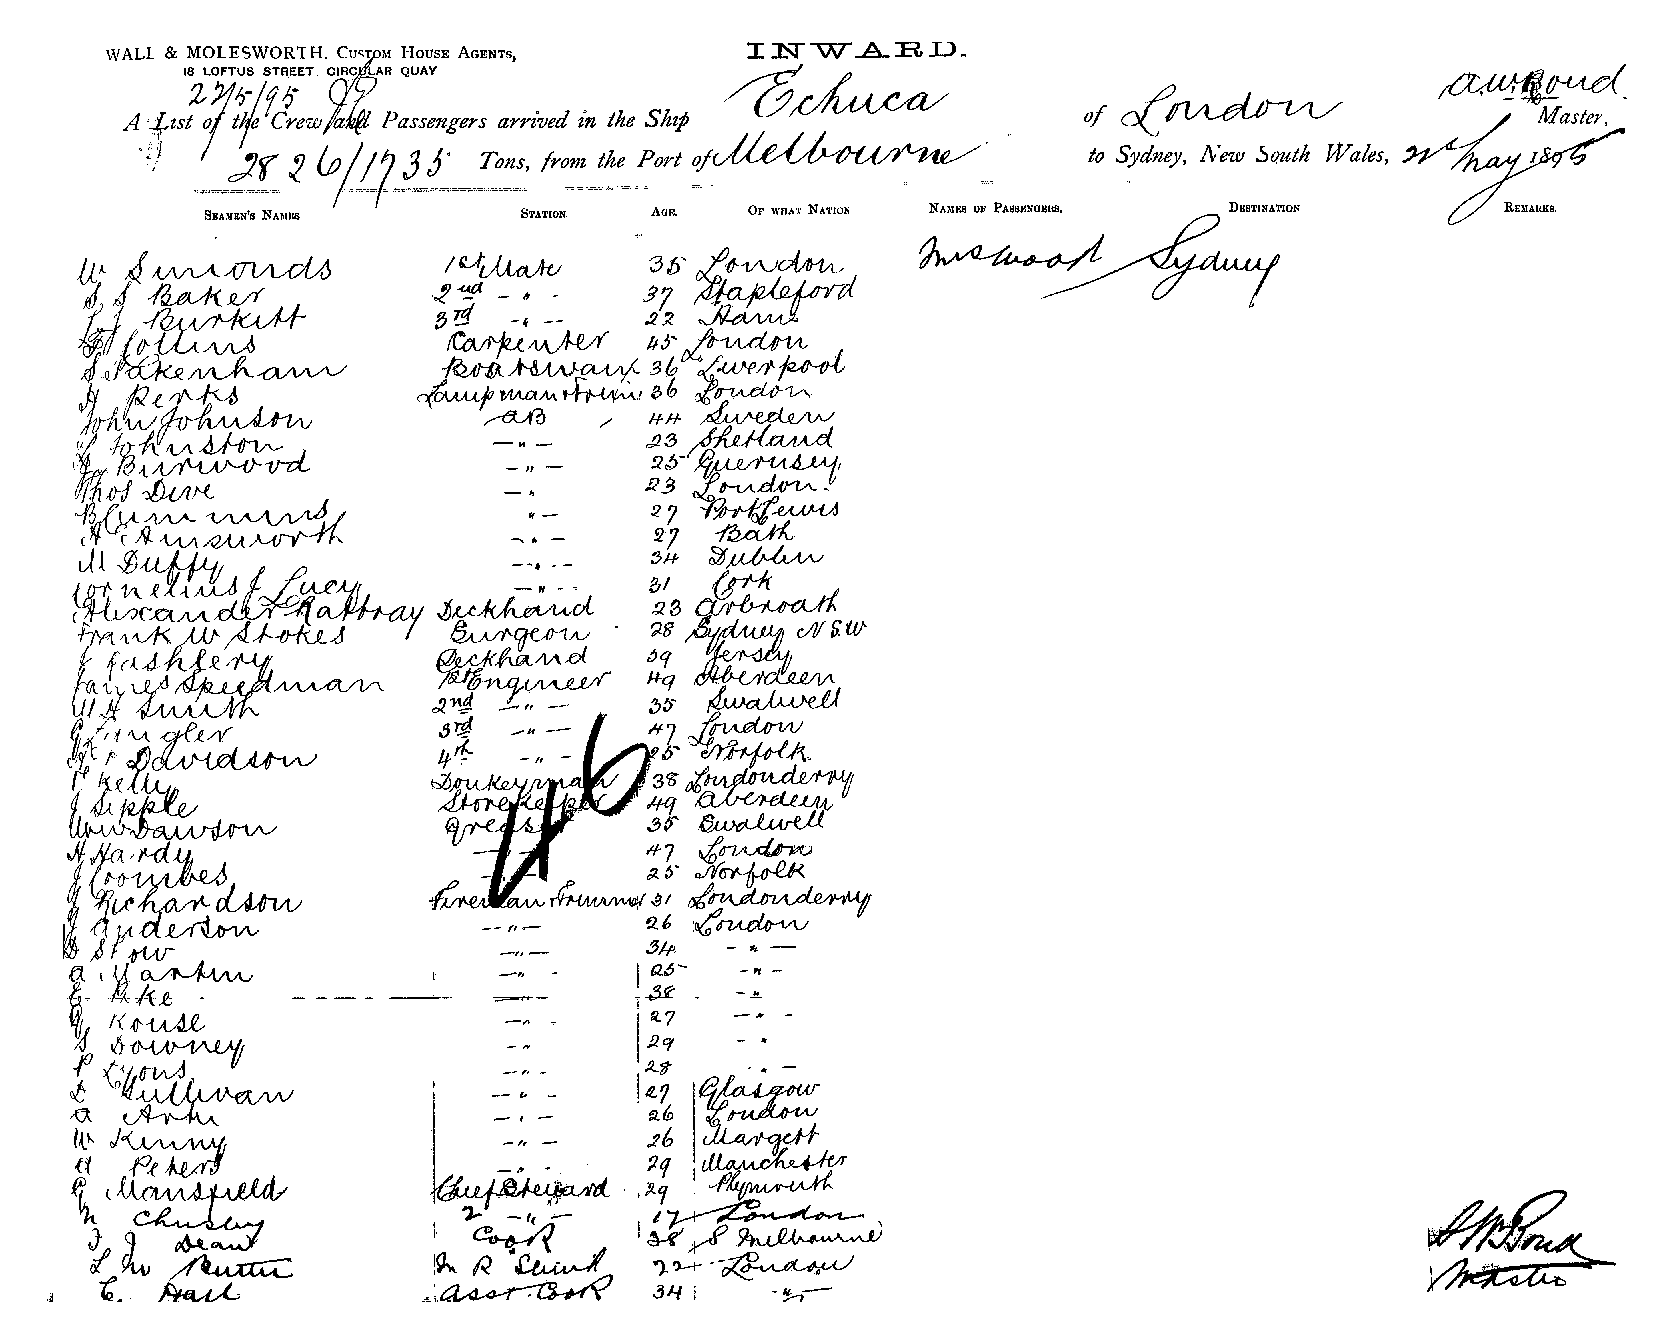 WALL & MOLESWORTH, CUSTOM HOUSE AGENTS,
18 LOFTUS STREET, CIRCULAR QUAY
INWARD.
22/5/95
A List of the Crew and Passengers arrived in the Ship Echuca of London A.W. Bond Master,
2826/1735 Tons, from the Port of Melbourne to Sydney, New South Wales, May 1895
SEAMEN'S NAMES STATION AGE OF WHAT NATION NAMES OF PASSENGERS. DESTINATION REMARKS.
W Simonds 1st Mate 35 London Mrs Wood Sydney
S J Baker 2nd - " - 37 Stapleford
Burkitt 3rd - " - 22 Ham
Collins Carpenter 45 London
S Pakenham Boatswain 36 Liverpool
H Perks Lampman & Trim 36 London
John Johnson AB 44 Sweden
Johnston - " - 23 Shetland
Burwood - " - 25 Guernsey
Thos Dive - " 23 London.
B Cummins " - 27 Port Lewis
A Ainsworth - " - 27 Bath
M Duffy - " - 34 Dublin
Cornelius J Lucy - " - 31 Cork
Alexander Rattray Deckhand 23 Arbroath
Frank W Stokes Surgeon 28 Sydney NSW
Deckhand 39 Jersey
James Speedman 1st Engineer 49 Aberdeen
W H Smith 2nd - " - 35 Swalwell
3rd - " - 47 London
Davidson 4th - " - 25 Norfolk
Kelly Donkeyman 38 Londonderry
J Sipple Storekeeper 49 Aberdeen
Wm Dawson Greaser 35 Swalwell
H Hardy 47 London
J Coombes 25 Norfolk
46
J Richardson Fireman & Trimmer 31 Londonderry
J Anderson - " - 26 London
D Stow - " - 34 - " -
A Martin - " - 25 - " -
E. Pike - " - 38 - "
G Rouse - " - 27 - " -
S Downey - " 29 - "
P Lyons - " - 28 - " -
D Sullivan - " - 27 Glasgow
A - " - 26 London
W Kenny - " - 26 Margett
H Peters - " - 29 Manchester
G Mansfield Chief Steward 29 Plymouth
2 - " - 17 London
J Dean Cook 38 S Melbourne
M R Stewd 22 London
C. Asst. Cook 34 "
A W Bond
Master